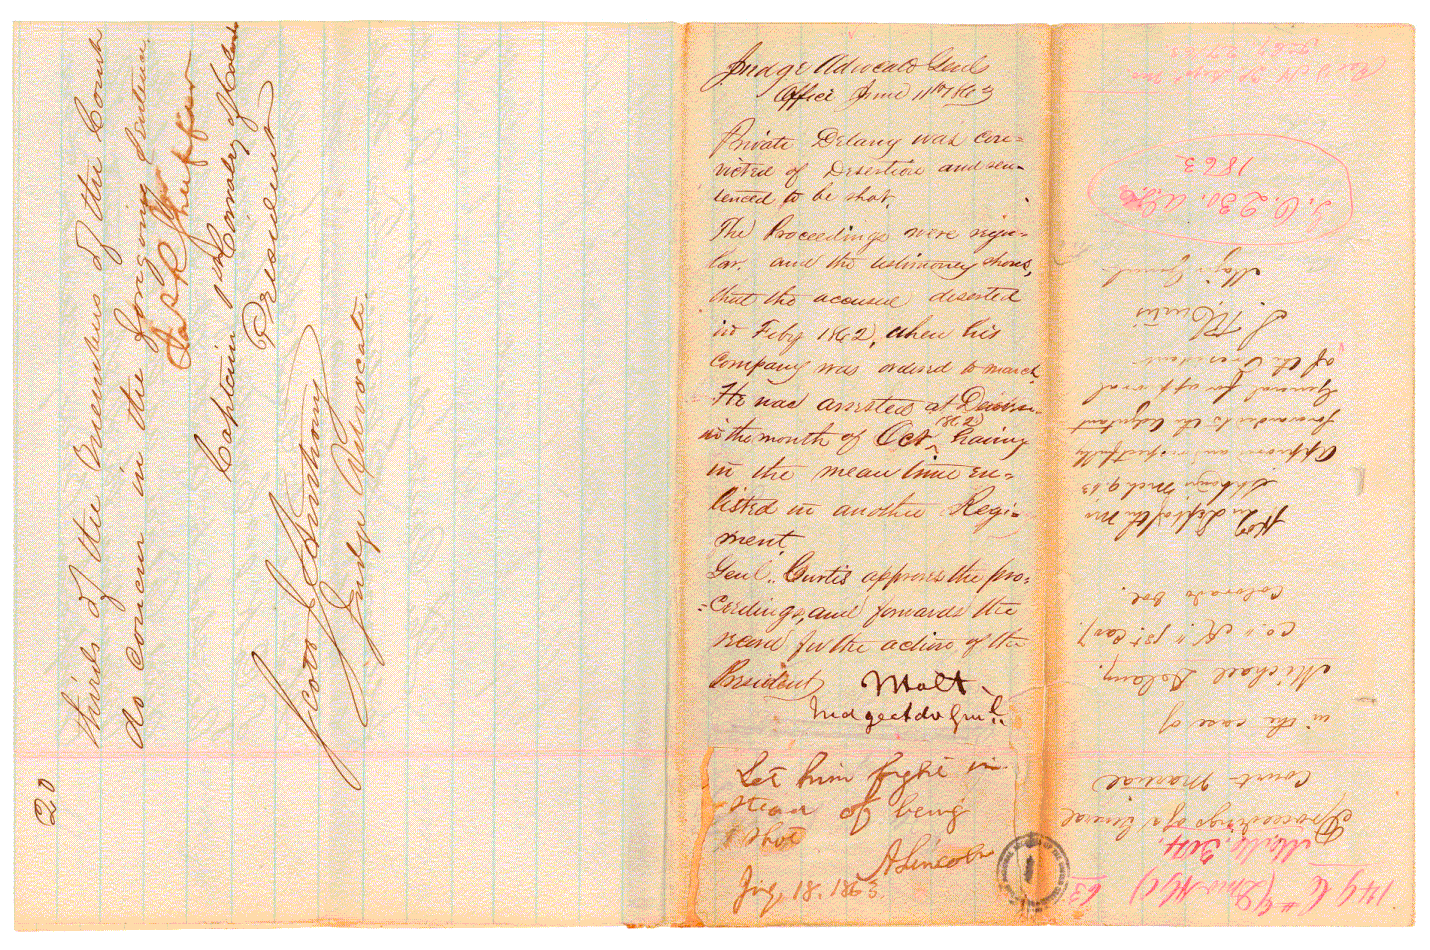 thirds of the members of the Court
do concur in the foregoing Sentence.
Captain 1st Cavalry of Colorado
President
Scott J. Anthony
Judge Advocate.
20
Judge Advocate Genls
Office June 11th 1863
Private Delany was con-
victed of Desertion and sen-
tenced to be shot.
The Proceedings were regu-
lar, and the testimoney shows,
that the accused deserted
in Feby 1862, when his
company was ordered to march
He was arrested at Denver
in the month of Oct (1862) having
in the mean time en-
listed in another Regi-
ment.
Genl. Curtis approves the pro-
-ceedings, and forwards the
record for the action of the
President
J Holt
Judge Adv Genl.
Let him fight in-
stead of being
shot
A Lincoln
July 18. 1863.
1863
Major General
S R Curtis
of the President
General for approval
forwarded to the Adjutant
Approved and respectfully
St Louis Mch 9. 63
Hd Qrs Dept of the Mo
Colorado Vol.
Co. "K." 1st. Cav.
Michael Delany.
in the case of
Court-Martial
Proceedings of a General
63